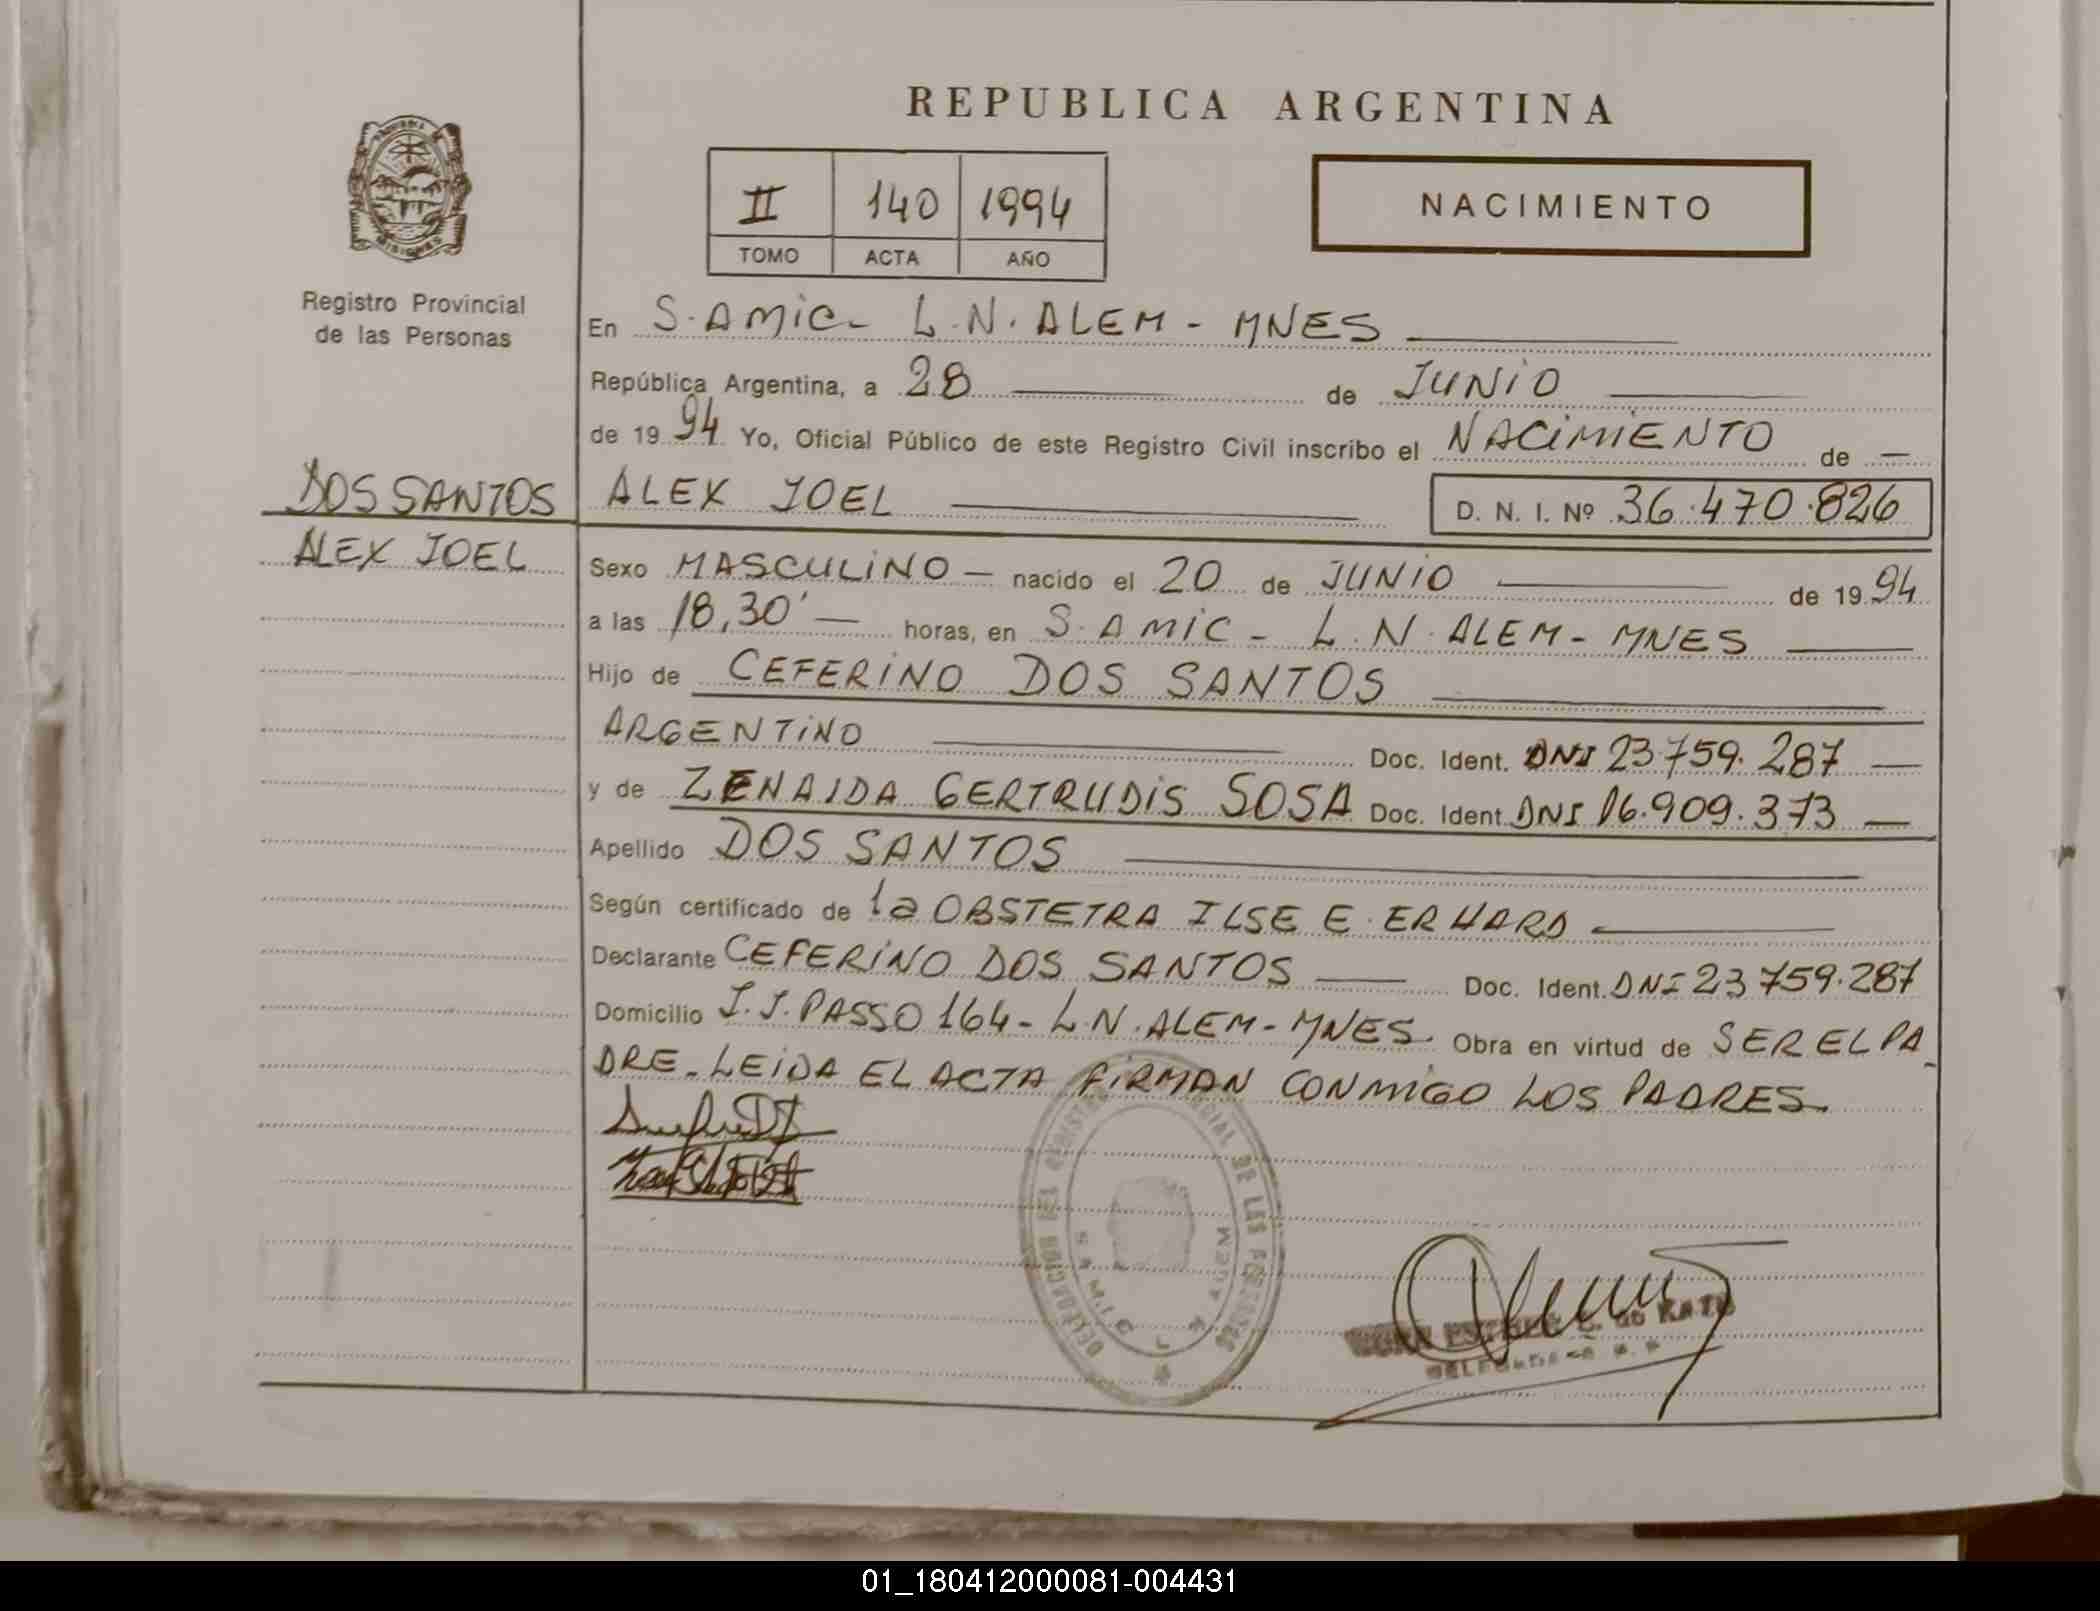 REPUBLICA ARGENTINA
II 140 1994
TOMO ACTA AÑO
NACIMIENTO
MISIONES
Registro Provincial
de las Personas
En S. AMIC - L.N. ALEM - MNES
República Argentina, a 28 de JUNIO
de 1994 Yo, Oficial Público de este Registro Civil inscribo el NACIMIENTO de —
DOS SANTOS
ALEX JOEL
ALEX JOEL D. N. I. Nº 36.470.826
Sexo MASCULINO — nacido el 20 de JUNIO de 1994
a las 18,30' — horas, en S. AMIC - L.N. ALEM - MNES
Hijo de CEFERINO DOS SANTOS
ARGENTINO Doc. Ident. DNI 23.759.287 —
y de ZENAIDA GERTRUDIS SOSA Doc. Ident. DNI 16.909.373 —
Apellido DOS SANTOS
Según certificado de la OBSTETRA ILSE E. ERHARD
Declarante CEFERINO DOS SANTOS — Doc. Ident. DNI 23.759.287
Domicilio J.J. PASSO 164 - L.N. ALEM - MNES. Obra en virtud de SER EL PA-
DRE. LEIDA EL ACTA FIRMAN CONMIGO LOS PADRES.
DELEGACION DEL REGISTRO PROVINCIAL DE LAS PERSONAS
01_180412000081-004431